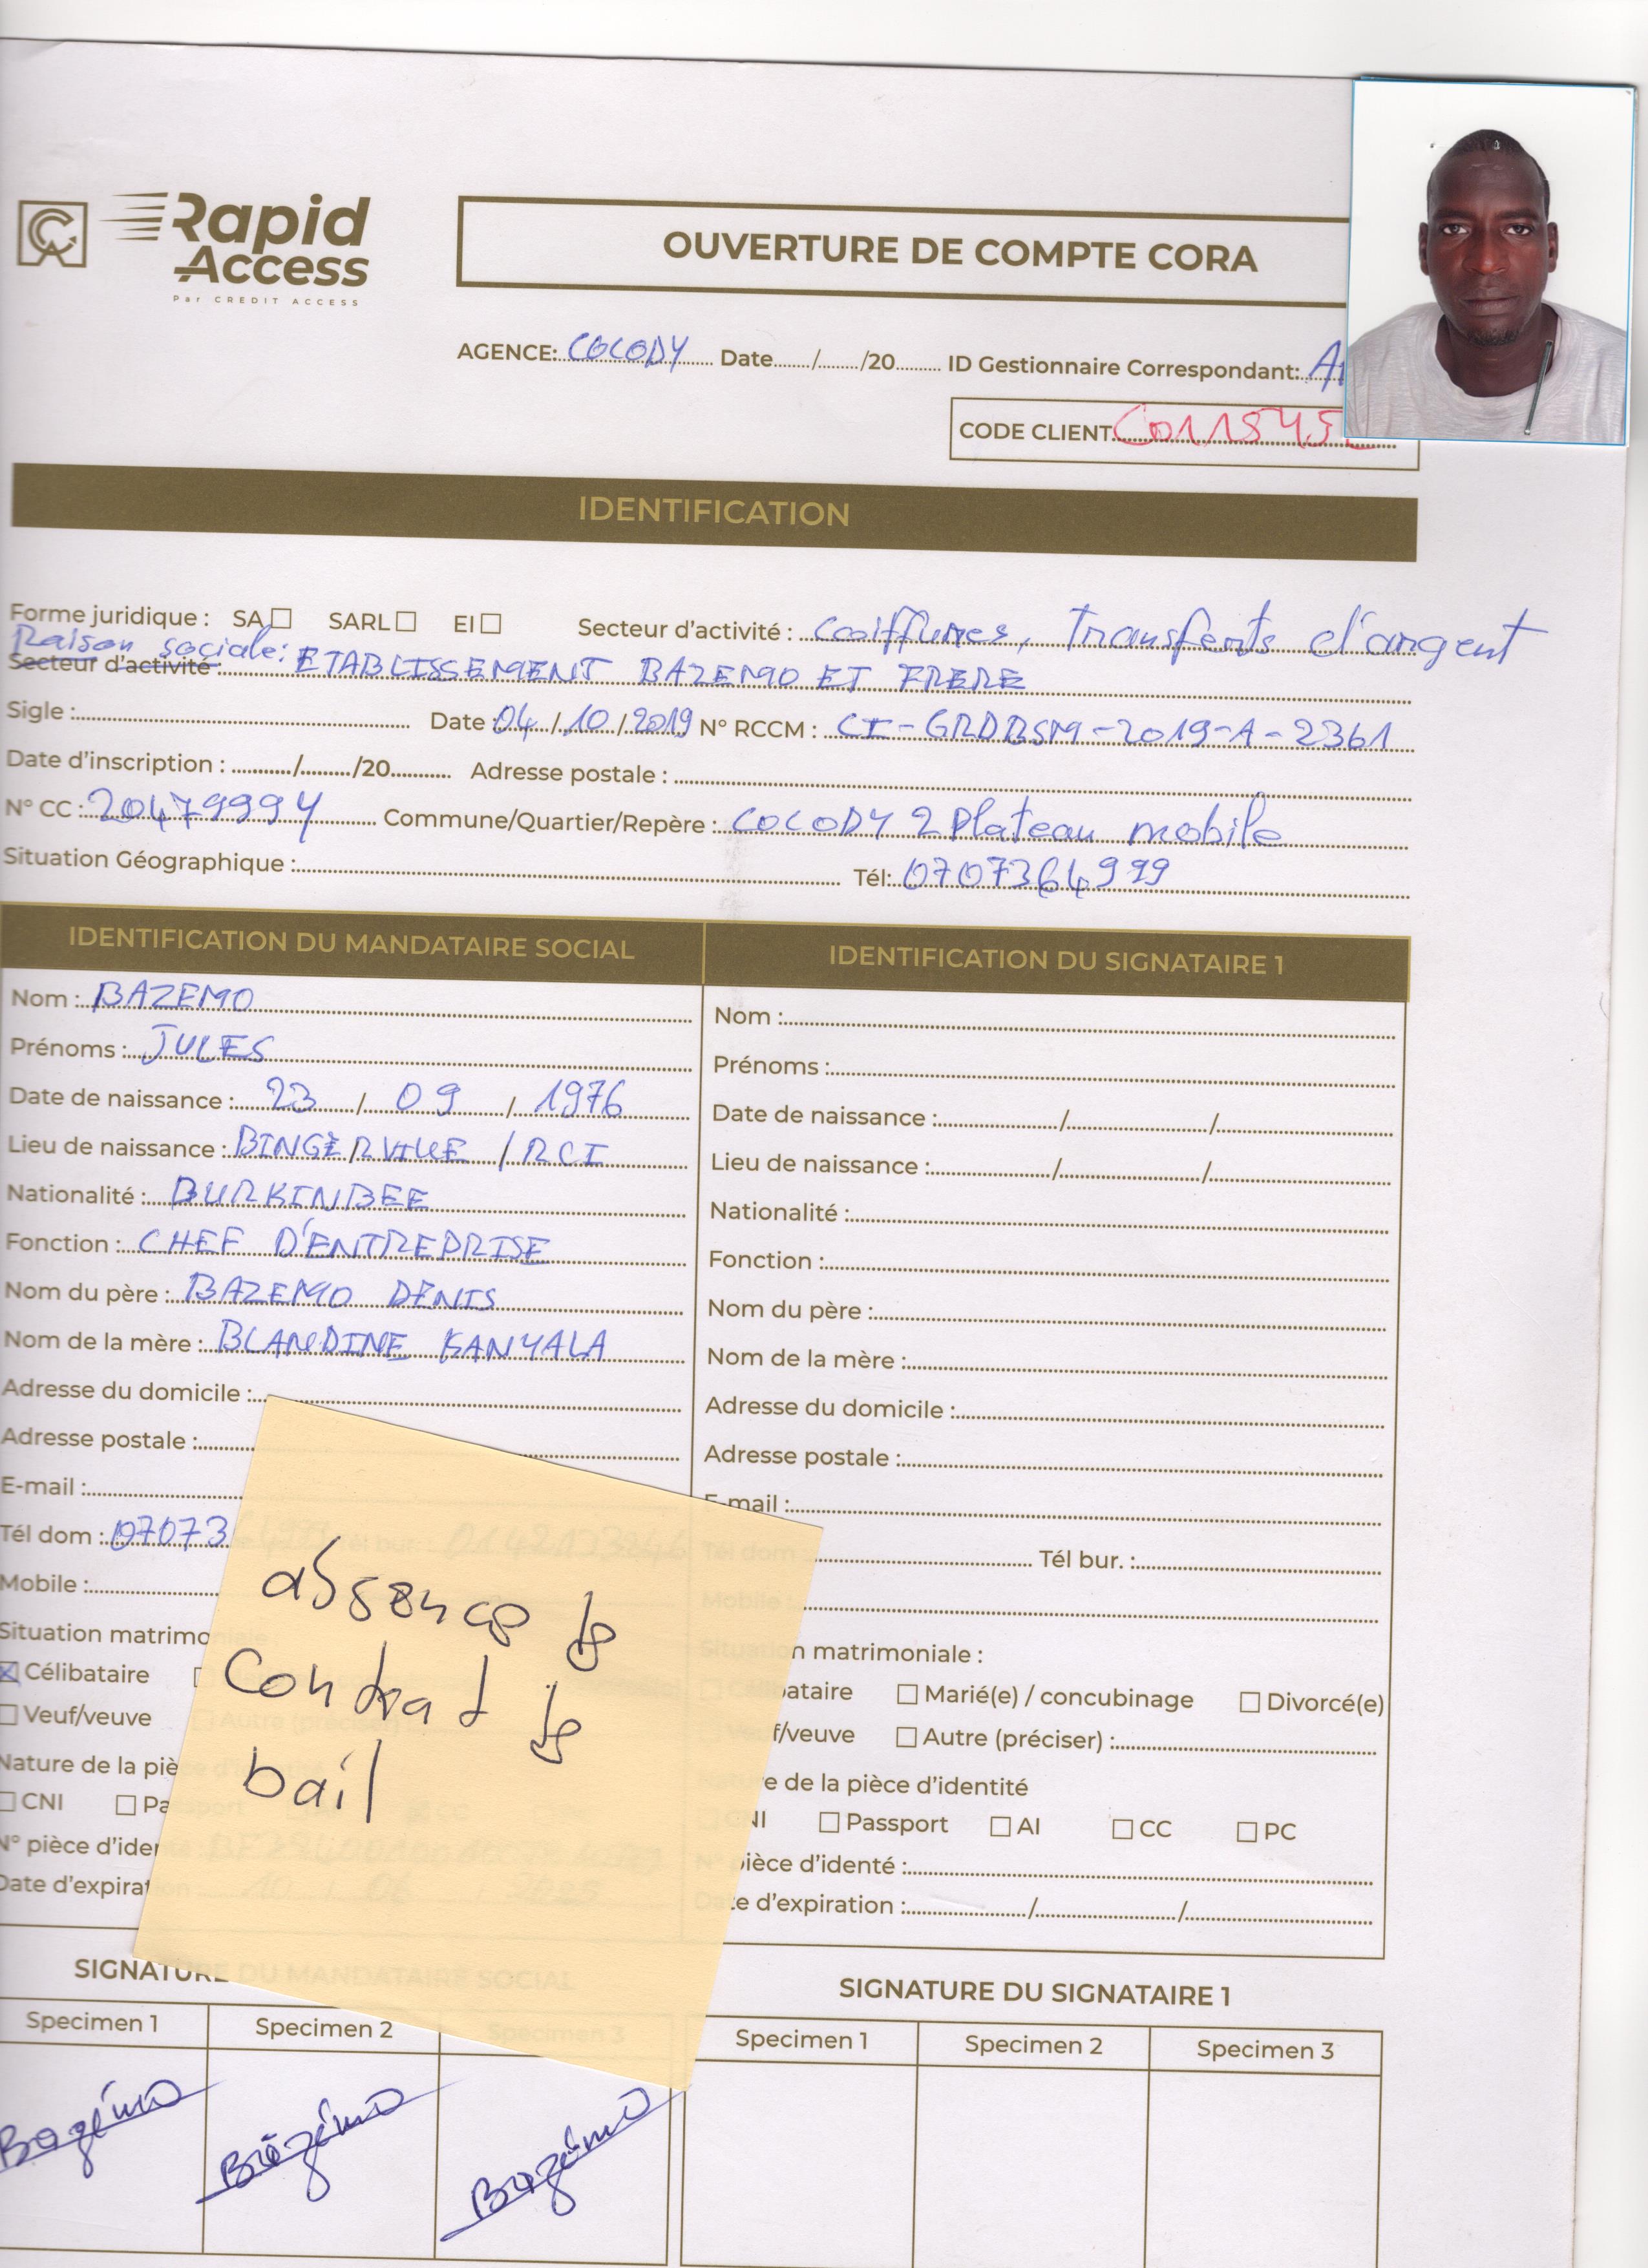 Rapid Access
Par CREDIT ACCESS
OUVERTURE DE COMPTE CORA
AGENCE: COCODY Date......./......../20......... ID Gestionnaire Correspondant:
CODE CLIENT
IDENTIFICATION
Forme juridique : SA☐ SARL☐ EI☐ Secteur d'activité : Coiffures, Transferts d'argent
Raison sociale:
Secteur d'activité : ETABLISSEMENT BAZEMO ET FRERE
Sigle : Date : 04 / 10 / 2019 N° RCCM : CI-GRDBSM-2019-A-2361
Date d'inscription : ........../........./20........... Adresse postale :
N° CC : 2047999Y Commune/Quartier/Repère : COCODY 2 Plateau mobile
Situation Géographique : Tél: 0707364999
IDENTIFICATION DU MANDATAIRE SOCIAL
Nom : BAZEMO
Prénoms : JULES
Date de naissance : 23 / 09 / 1976
Lieu de naissance : BINGERVILLE / RCI
Nationalité : BURKINBEE
Fonction : CHEF D'ENTREPRISE
Nom du père : BAZEMO DENIS
Nom de la mère : BLANDINE KANYALA
Adresse du domicile :
Adresse postale :
E-mail :
Tél dom : 07073
Mobile :
Situation matrimoniale :
☒ Célibataire
☐ Veuf/veuve ☐ Autre (préciser)
Nature de la pièce
☐ CNI ☐ Passport
N° pièce d'identé :
Date d'expiration : 10 / 06 /
absence de
contrat de
bail
SIGNATURE DU MANDATAIRE SOCIAL
Specimen 1 Specimen 2 Specimen 3
Bazémo Bazémo Bazémo
IDENTIFICATION DU SIGNATAIRE 1
Nom :
Prénoms :
Date de naissance : / /
Lieu de naissance : / /
Nationalité :
Fonction :
Nom du père :
Nom de la mère :
Adresse du domicile :
Adresse postale :
E-mail :
Tél dom Tél bur. :
Mobile :
Situation matrimoniale :
Célibataire ☐ Marié(e) / concubinage ☐ Divorcé(e)
Veuf/veuve ☐ Autre (préciser) :
Nature de la pièce d'identité
CNI ☐ Passport ☐ AI ☐ CC ☐ PC
N° pièce d'identé :
Date d'expiration : / /
SIGNATURE DU SIGNATAIRE 1
Specimen 1 Specimen 2 Specimen 3